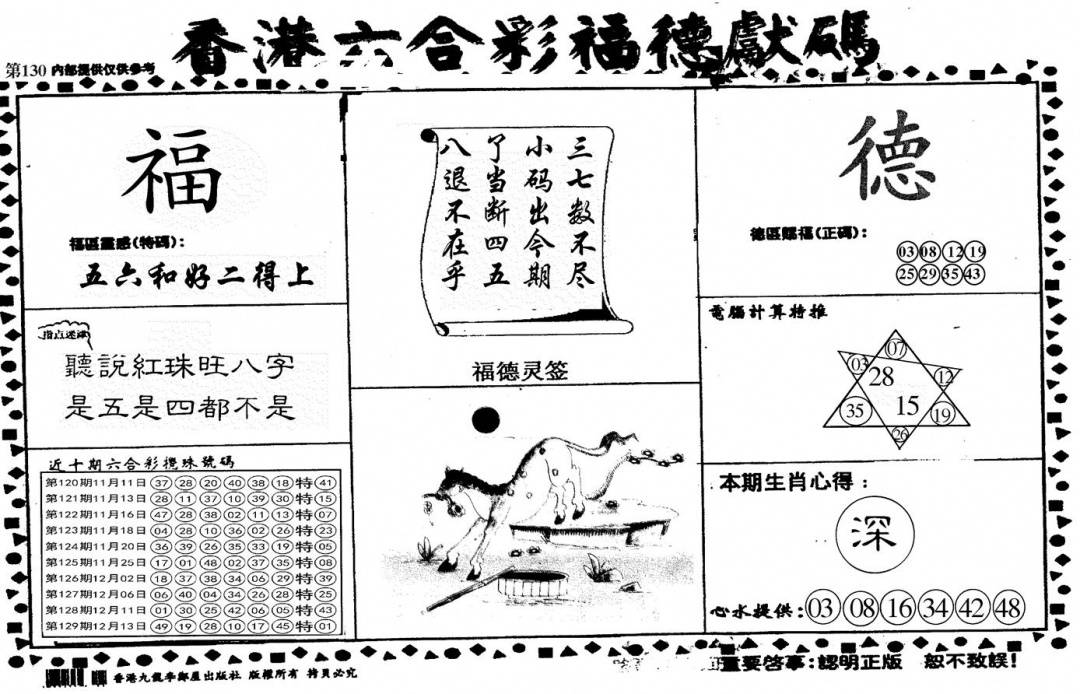 香港六合彩福德獻碼
第130 内部提供仅供参考
福
福區靈感(特碼):
五六和好二得上
指点迷津
聽說紅珠旺八字
是五是四都不是
近十期六合彩攪珠號碼
第120期11月11日 37 28 20 40 38 18 特 41
第121期11月13日 28 11 37 10 39 30 特 15
第122期11月16日 47 28 38 02 11 13 特 07
第123期11月18日 04 28 10 36 02 26 特 23
第124期11月20日 36 39 26 35 33 19 特 05
第125期11月25日 17 01 48 02 37 35 特 08
第126期12月02日 18 37 38 34 06 29 特 39
第127期12月06日 06 40 04 34 26 28 特 25
第128期12月11日 01 30 25 42 06 05 特 43
第129期12月13日 49 19 28 10 17 45 特 01
三七数不尽
小码出今期
了当断四五
八退不在乎
福德灵签
德
德區賜福(正碼):
03 08 12 19
25 29 35 43
電腦計算特推
07
03 28 12
35 15 19
26
本期生肖心得:
深
心水提供: 03 08 16 34 42 48
香港九龍李鄭屋出版社 版權所有 拷貝必究
重要啓事:認明正版 恕不致誤!